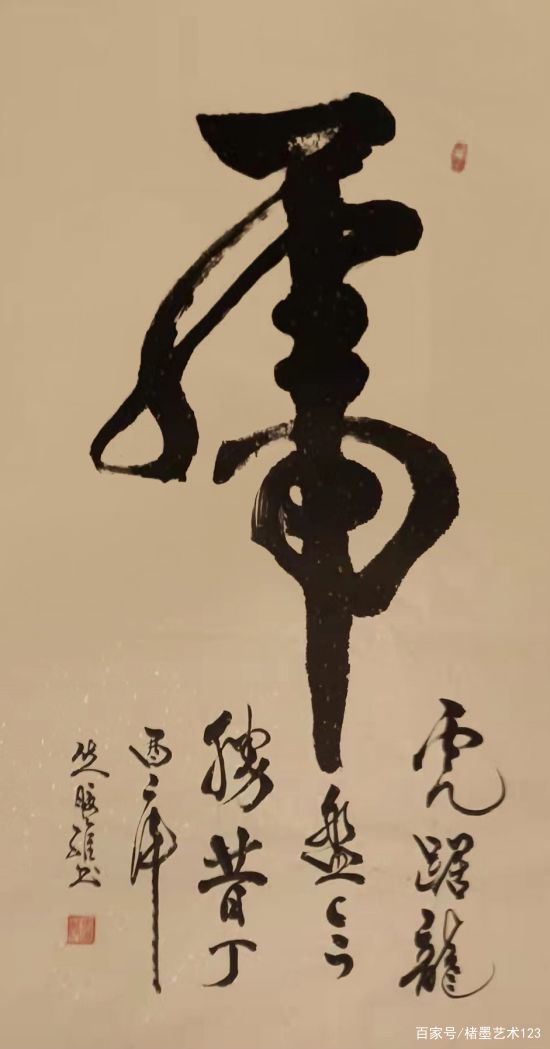 虎
虎踞龍
盤今
勝昔丁
酉年
書
百家号/楮墨艺术123